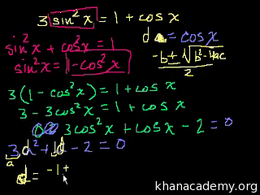 3 sin²x = 1 + cos x
sin²x + cos²x = 1
sin²x = 1-cos²x
d = cos x
-b ± √b²-4ac
2
3(1-cos²x) = 1+cos x
3-3cos²x = 1+cos x
3cos²x + cos x - 2 = 0
3d² + 1d - 2 = 0
a
d = -1 ±
khanacademy.org